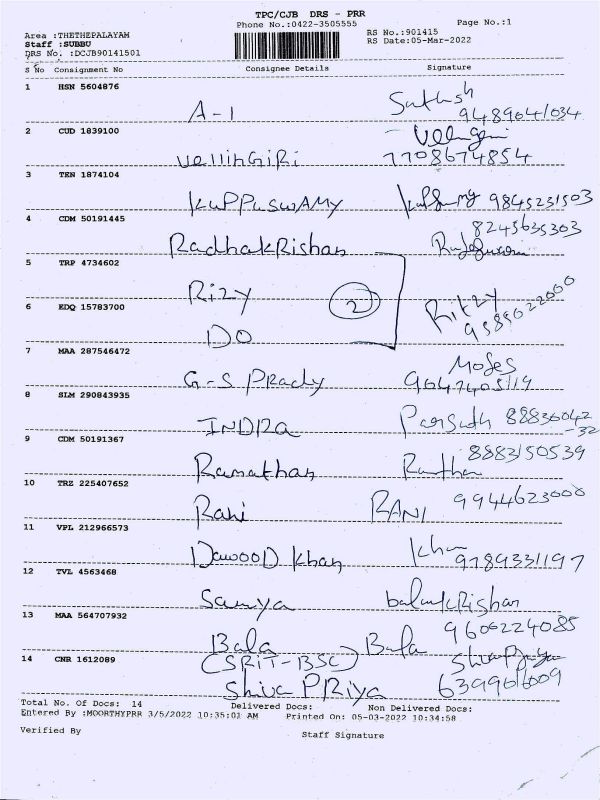 TPC/CJB DRS - PRR
Phone No.:0422-3505555
Page No.:1
Area :THETHEPALAYAM
Staff :SUBBU
DRS No. :DCJB90141501
RS No.:901415
RS Date:05-Mar-2022
S No Consignment No Consignee Details Signature
1 HSN 5604876
A-1 Sathish
9489041034
2 CUD 1839100
Vellingiri
VELLINGIRI 7708674854
3 TEN 1874104
KUPPUSWAMY 9845231503
4 CDM 50191445
8245635303
RadhakRishan
5 TRP 4734602
Rizy (2)
6 EDQ 15783700
Ritzy
DO
7 MAA 287546472
Moses
G-S PRady
8 SLM 290843935
INDRa 88836042
-32
9 CDM 50191367
8883150539
Ramathan
10 TRZ 225407652
9944623000
Rani RANI
11 VPL 212966573
Khan
DawooD Khan 9789331197
12 TVL 4563468
Sanya balankRishan
13 MAA 564707932
9600224085
Bala Bala
14 CNR 1612089
(SRIT-BSC)
Shiva PRiya
Total No. Of Docs: 14 Delivered Docs: Non Delivered Docs:
Entered By :MOORTHYPRR 3/5/2022 10:35:01 AM Printed On: 05-03-2022 10:34:58
Verified By Staff Signature